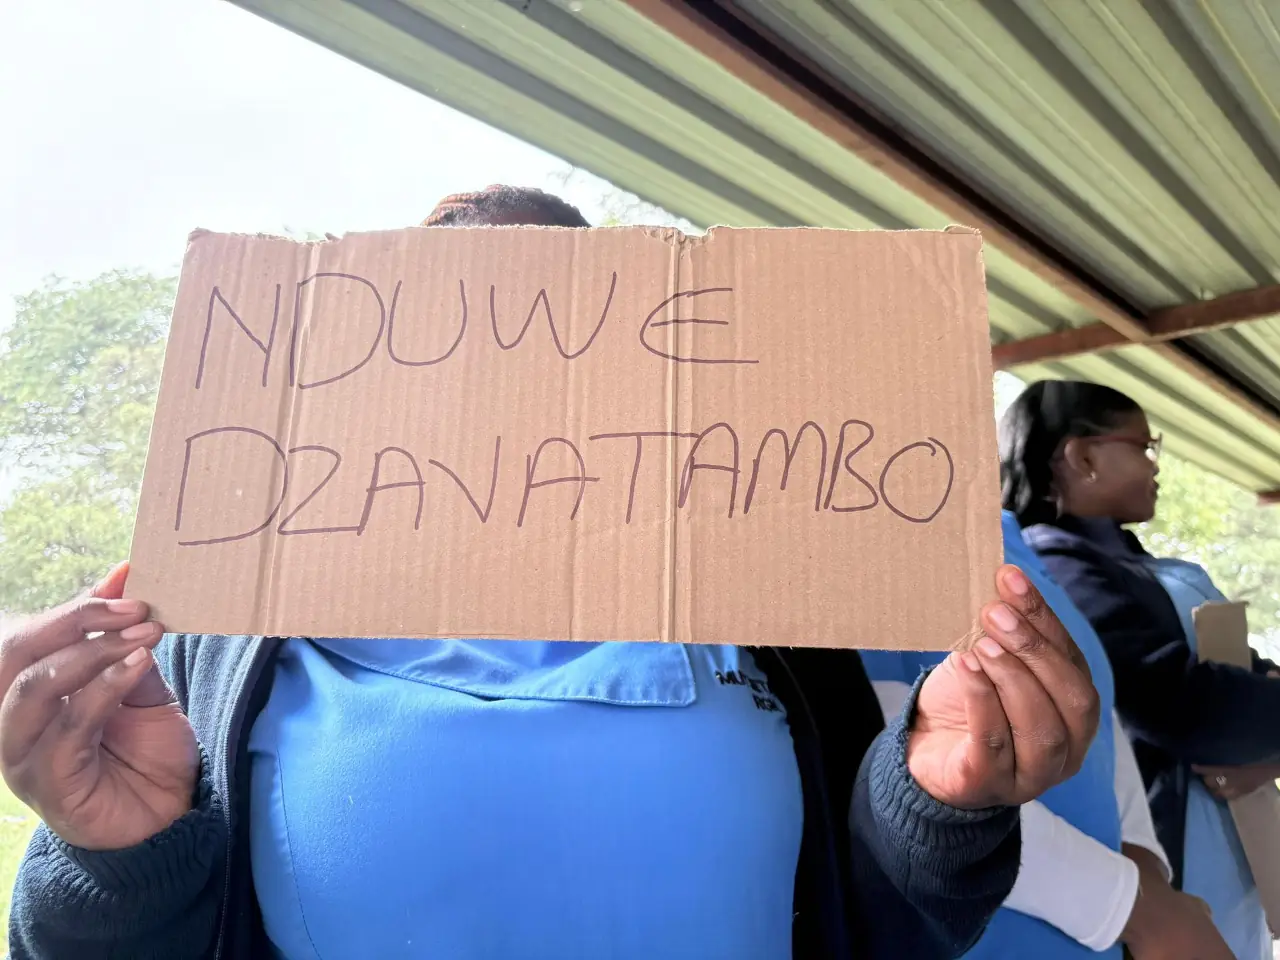 NDUWE
DZAVATAMBO